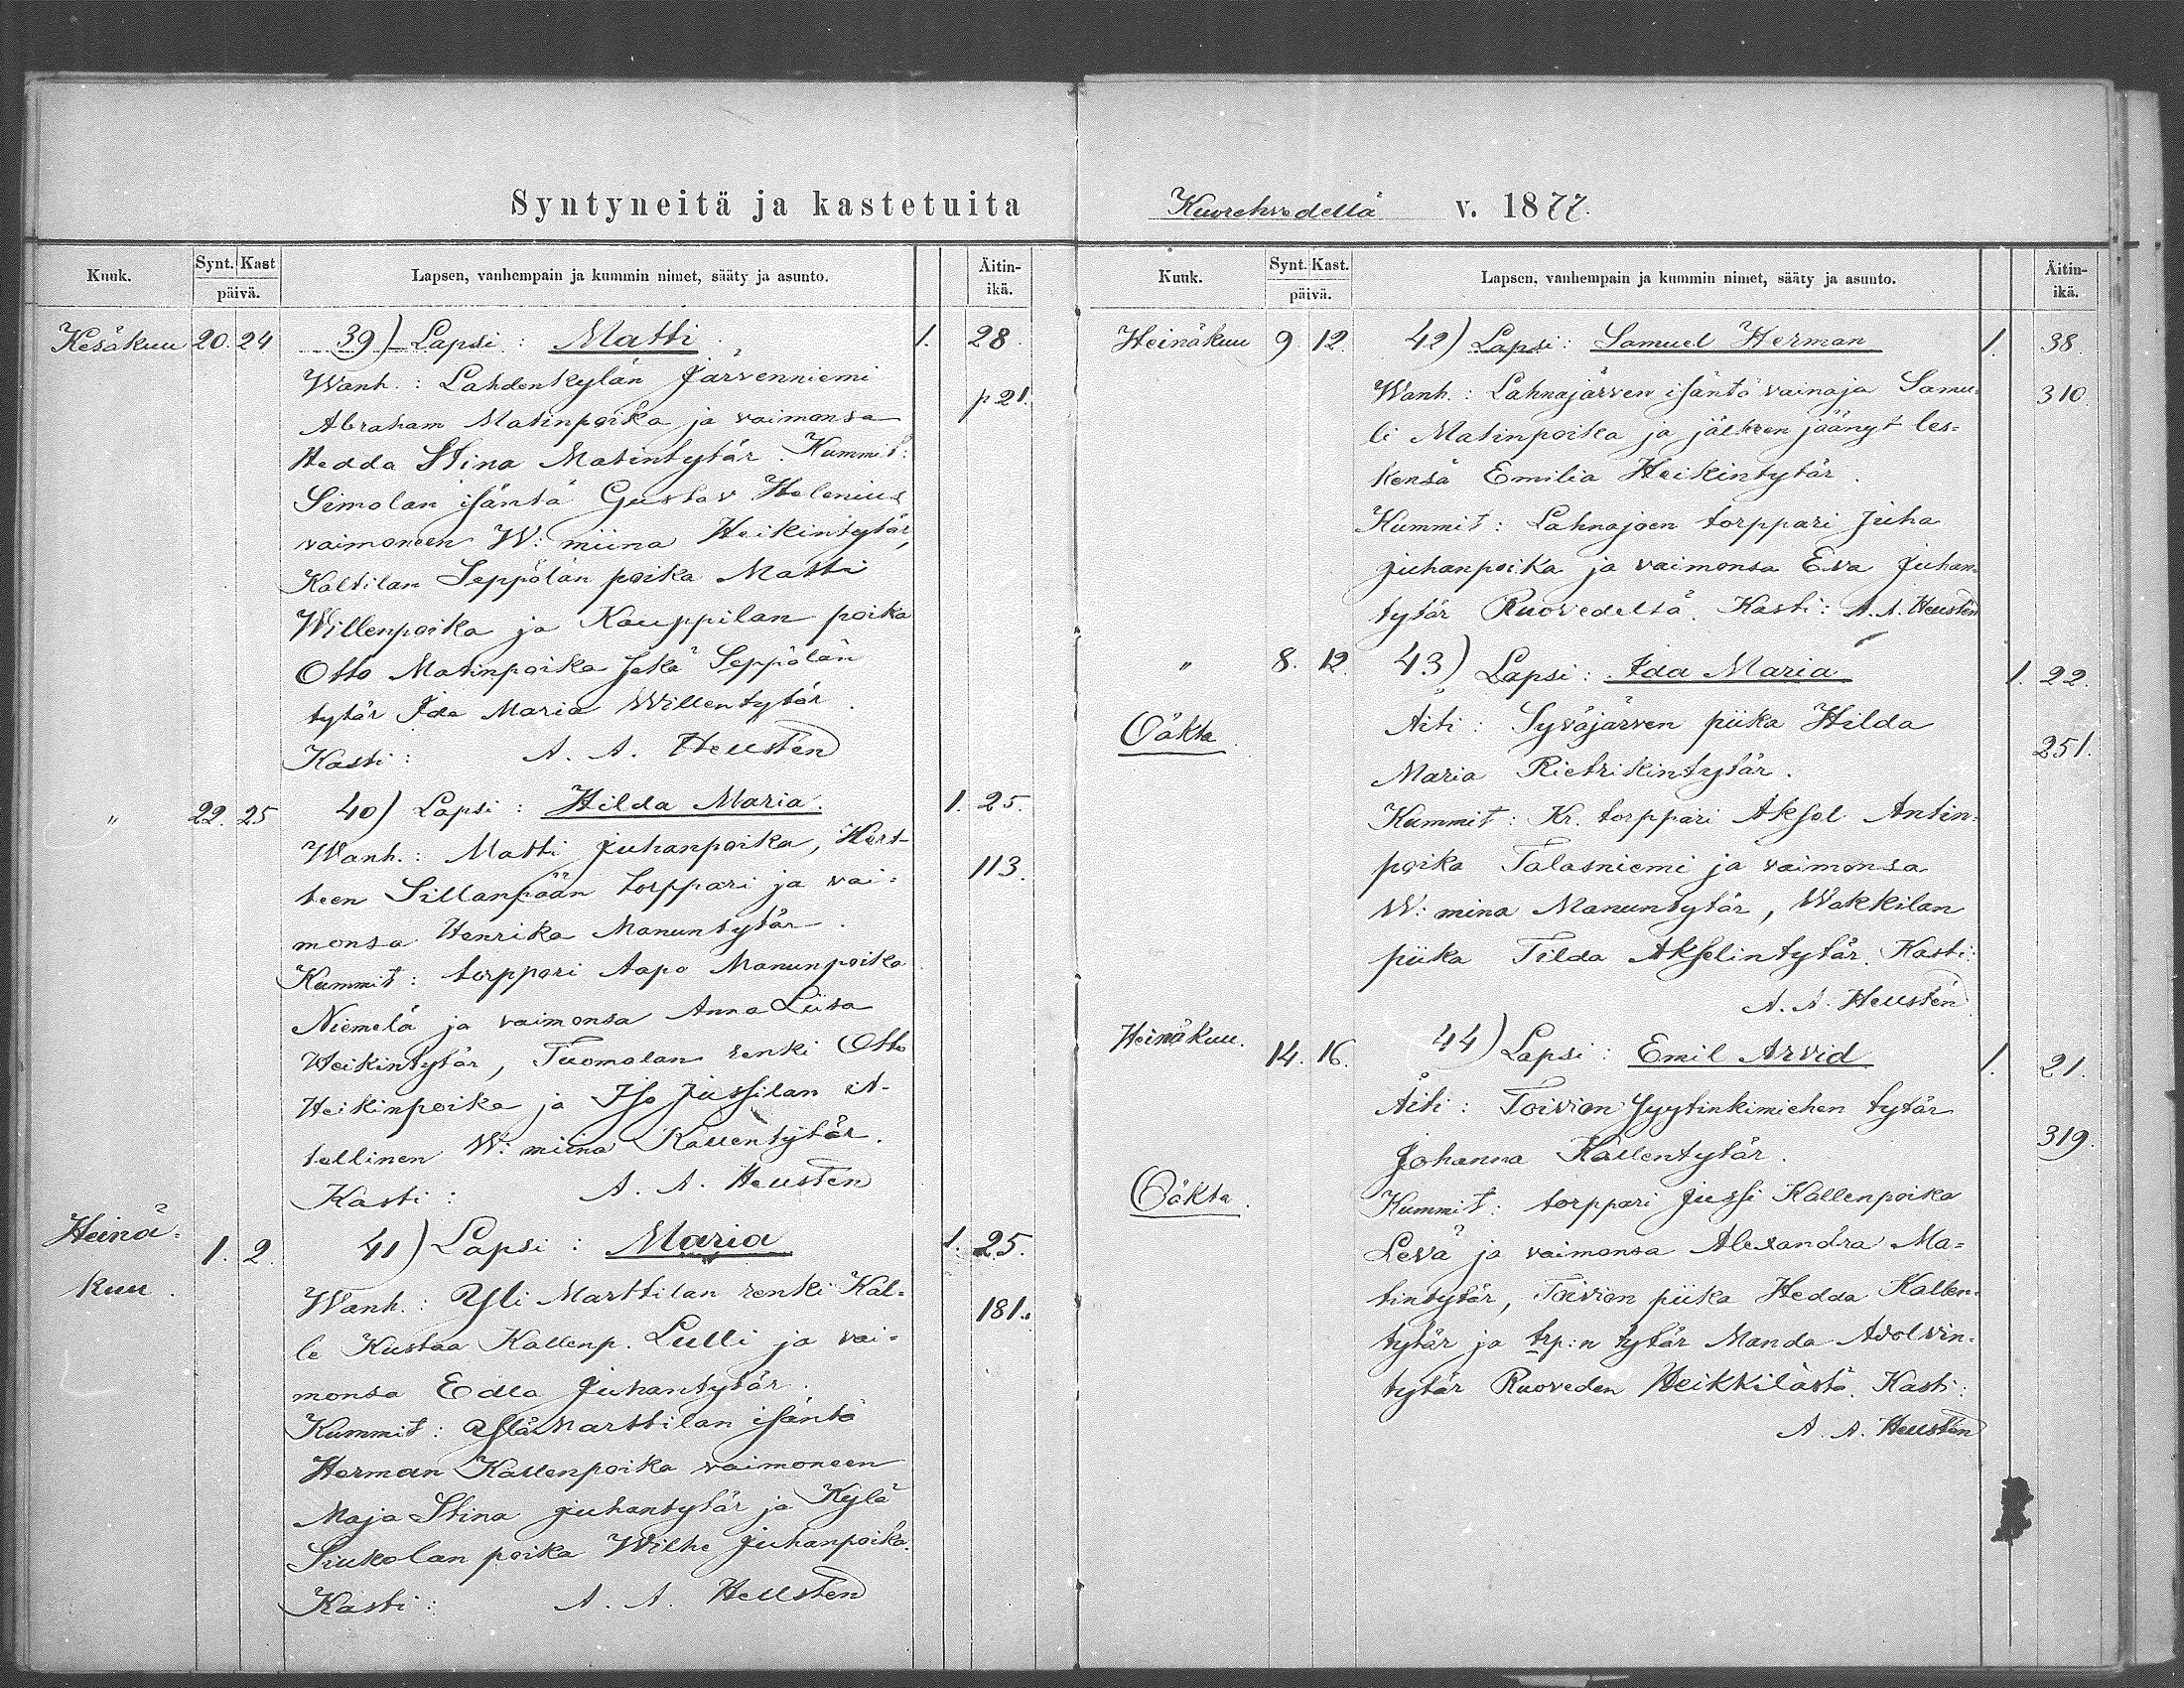 Syntyneitä ja kastetuita
Kuorehvedellä v. 1877.
Kuuk.
Synt. Kast
päivä.
Lapsen, vanhempain ja kummin nimet, sääty ja asunto.
Äitin-
ikä.
Kesäkuu 20. 24 39) Lapsi: Matti. 1. 28.
Wanh.: Lahdenkylän Järvenniemi
p 21.
Abraham Matinpoika ja vaimonsa
Hedda Stina Matintytär. Kummit:
Simolan isäntä Gustav Helenius
vaimoneen W:miina Heikintytär,
Kaltilan Seppölän poika Matti
Willenpoika ja Kauppilan poika
Otto Matinpoika sekä Seppölän
tytär Ida Maria Willentytär.
Kasti: A. A. Hellstén
" 22. 25 40) Lapsi: Hilda Maria. 1. 25.
Wanh.: Matti Juhanpoika, Hert-
113.
teen Sillanpään torppari ja vai-
monsa Henrika Manuntytär.
Kummit: torppari Aapo Manunpoika
Niemelä ja vaimonsa Anna Liisa
Heikintytär, Tuomalan renki Otto
Heikinpoika ja Iso Jussilan it-
tellinen W:miina Kallentytär.
Kasti: A. A. Hellstén
Heinä-
kuu.
1. 2. 41) Lapsi: Maria 1. 25.
Wanh.: Yli Marttilan renki Kal-
181.
le Kustaa Kallenp. Lulli ja vai-
monsa Edla Juhantytär.
Kummit: Ylä Marttilan isäntä
Herman Kallenpoika vaimoneen
Maja Stina Juhantytär ja Kylä
Siukolan poika Wilhe Juhanpoika.
Kasti: A. A. Hellstén
Kuuk.
Synt. Kast.
päivä.
Lapsen, vanhempain ja kummin nimet, sääty ja asunto.
Äitin-
ikä.
Heinäkuu 9. 12. 42) Lapsi: Samuel Herman 1. 38.
Wanh.: Lahnajärven isäntä vainaja Samu-
310.
li Matinpoika ja jälkeen jäänyt les-
kensä Emilia Heikintytär.
Kummit: Lahnajoen torppari Juha
Juhanpoika ja vaimonsa Eva Juhan-
tytär Ruovedeltä. Kasti: A. A. Hellstén
" 8. 12. 43) Lapsi: Ida Maria 1. 22.
Äiti: Syväjärven piika Hilda
Oäkta.
251.
Maria Rietrikintytär.
Kummit: Kr. torppari Aksel Antin-
poika Talasniemi ja vaimonsa
W:mina Manuntytär, Wakkilan
piika Tilda Akselintytär. Kasti:
A. A. Hellstén
Heinäkuu. 14. 16. 44) Lapsi: Emil Arvid 1. 21.
Äiti: Toivion Jyytinkimiehen tytär
319.
Johanna Kallentytär.
Oäkta.
Kummit: torppari Jussi Kallenpoika
Levä ja vaimonsa Alexandra Ma-
tintytär, Toivion piika Hedda Kallen-
tytär ja trp:n tytär Manda Adolvin-
tytär Ruoveden Heikkilästä. Kasti:
A. A. Hellstén